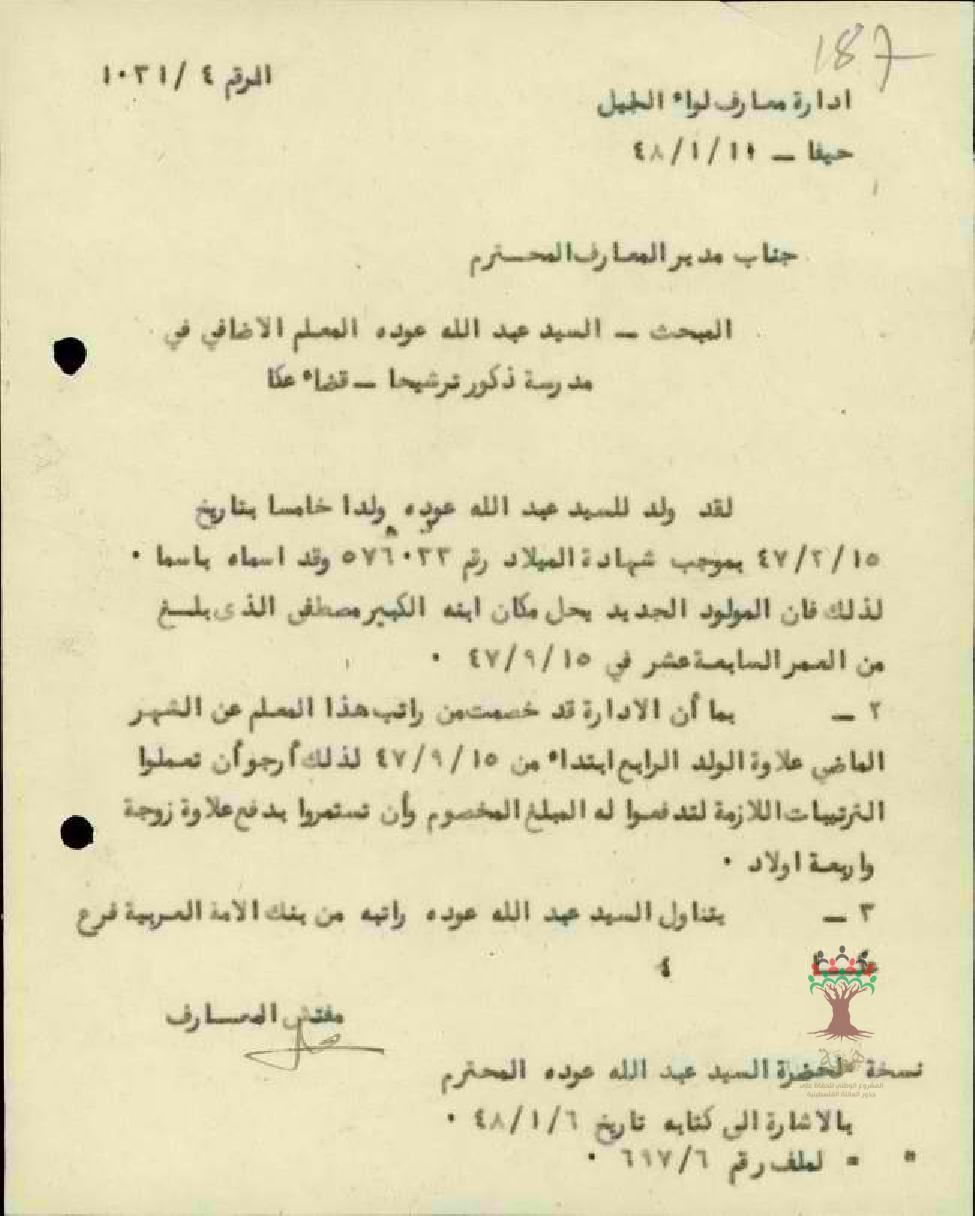 187
الرقم ٤ /١٠٣١
ادارة معارف لواء الجليل
حيفا — ١٠/١/٤٨
جناب مدير المعارف المحترم
المبحث — السيد عبد الله عوده المعلم الاضافي في
مدرسة ذكور ترشيحا — قضاء عكا
لقد ولد للسيد عبد الله عوده ولدا خامسا بتاريخ
٤٧/٢/١٥ بموجب شهادة الميلاد رقم ٥٧٦٠٣٣ وقد اسماه باسما ٠
لذلك فان المولود الجديد يحل مكان ابنه الكبير مصطفى الذى بلغ
من العمر السابعة عشر في ٤٧/٩/١٥ ٠
٢ — بما أن الادارة قد خصمت من راتب هذا المعلم عن الشهر
الماضي علاوة الولد الرابع ابتداء من ٤٧/٩/١٥ لذلك أرجو أن تعملوا
الترتيبات اللازمة لتدفعوا له المبلغ المخصوم وأن تستمروا بدفع علاوة زوجة
واربعة اولاد ٠
٣ — يتناول السيد عبد الله عوده راتبه من بنك الامة العربية فرع
٤
مفتش المعارف
نسخة لحضرة السيد عبد الله عوده المحترم
بالاشارة الى كتابه تاريخ ٤٨/١/٦ ٠
" " لملف رقم ٦٩٧/٦ ٠
هوية
المشروع الوطني للحفاظ على
جذور العائلة الفلسطينية